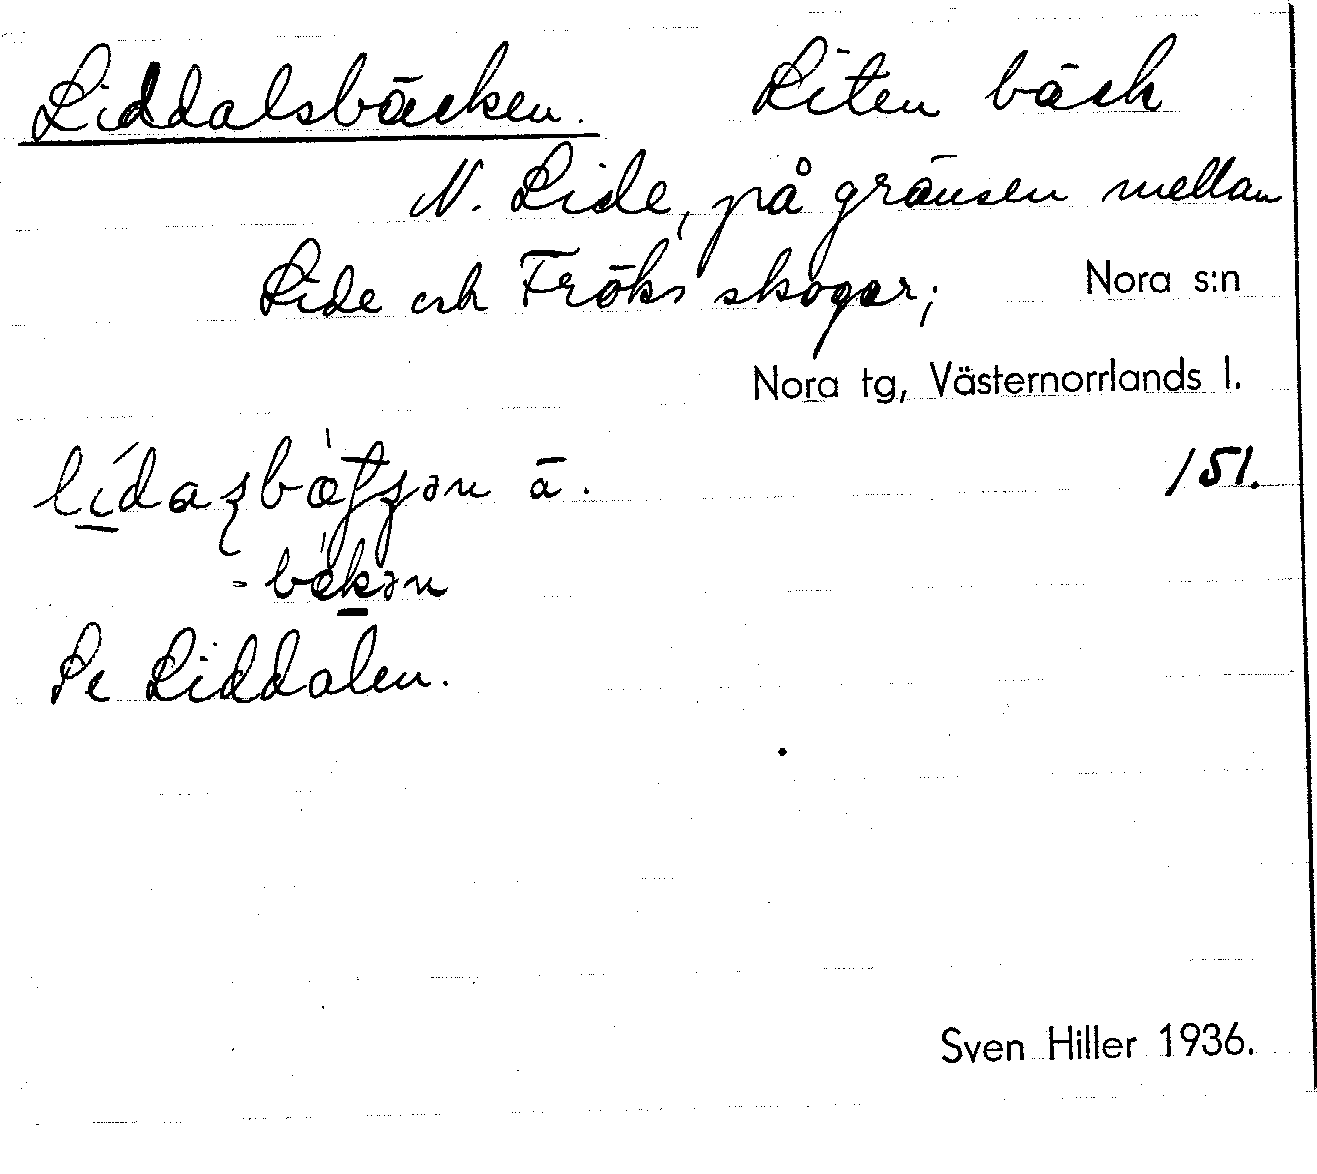 Liddalsbäcken. Liten bäck
N. Lide, på gränsen mellan
Lide och Fröks skogar; Nora s:n
Nora tg, Västernorrlands l.
ä. 151.
Se Liddalen.
Sven Hiller 1936.